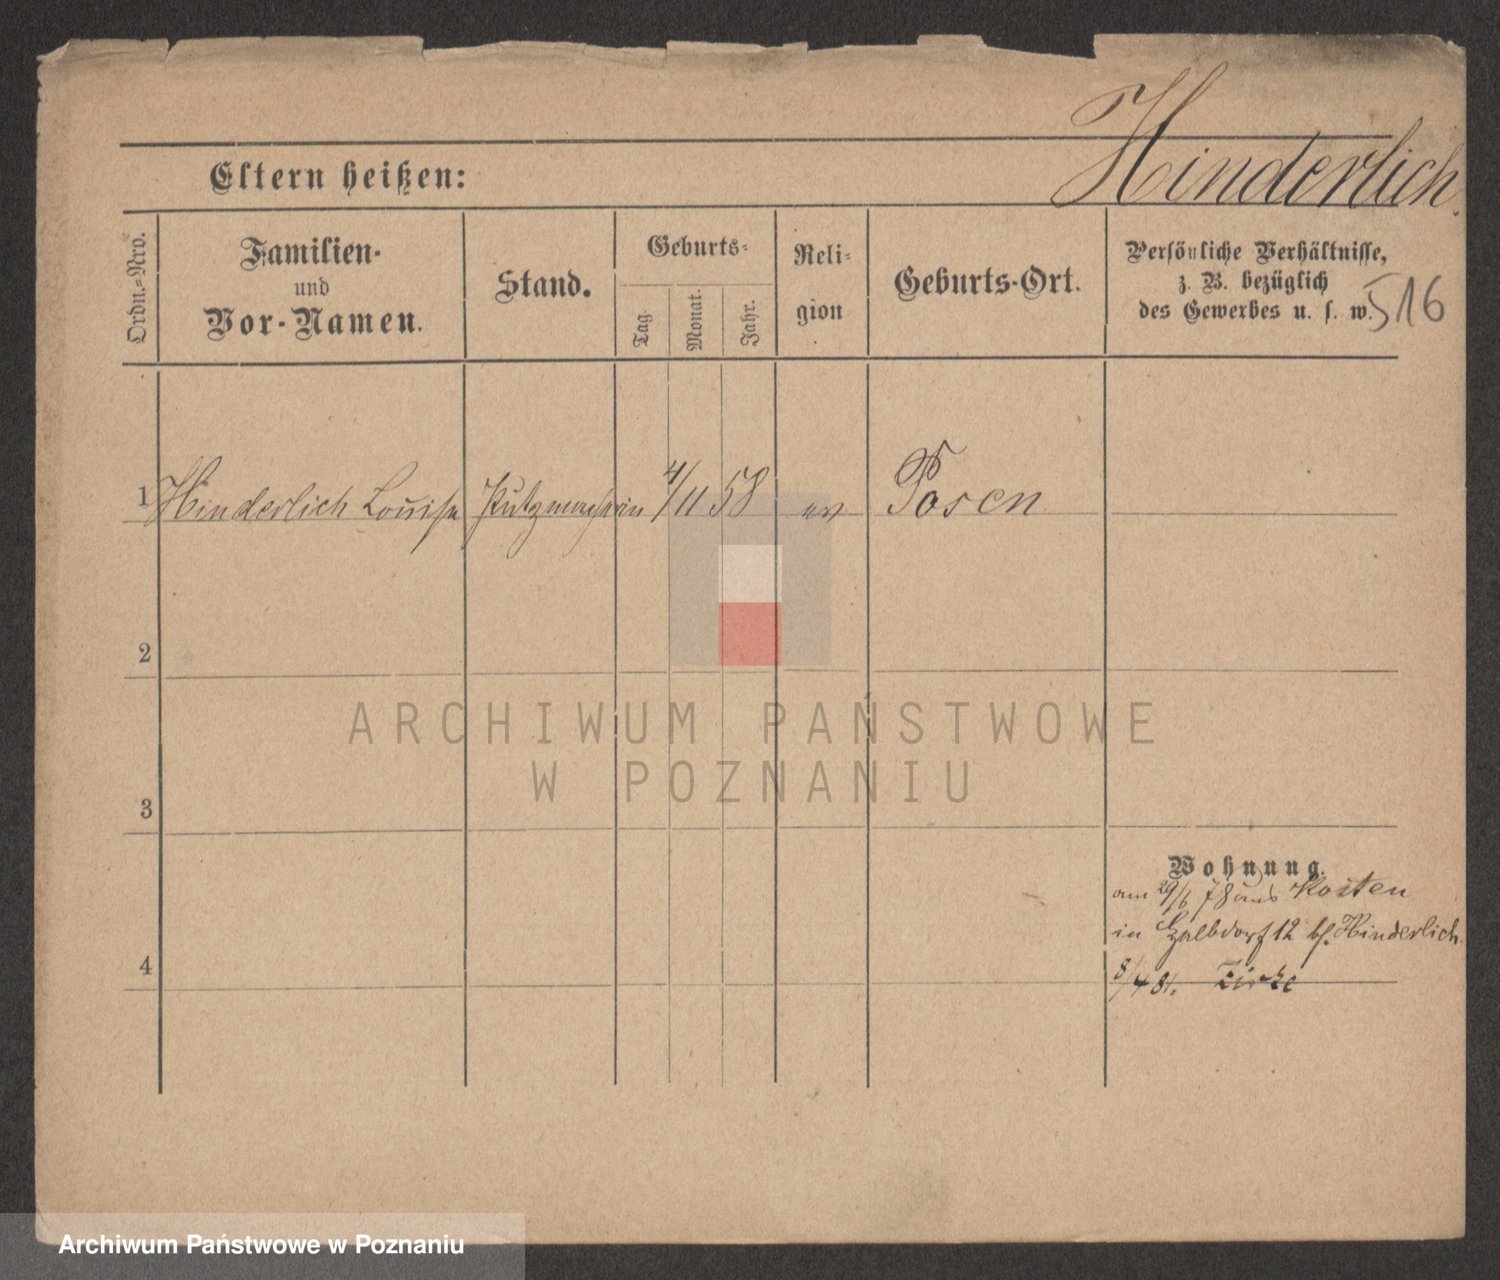 Hinderlich.
Eltern heißen:
Ordn.-Nro.
Familien-
und
Vor-Namen.
Stand.
Geburts-
Tag.
Monat.
Jahr.
Reli-
gion
Geburts-Ort.
Persönliche Verhältnisse,
z. B. bezüglich
des Gewerbes u. s. w.
516
1 Hinderlich Louise Putzmacherin 4/11 58 ev Posen
2
3
4
Wohnung.
am 29/6 78 aus Kosten
in Halbdorf 12 bf. Hinderlich
8/4 81. Zirke
ARCHIWUM PAŃSTWOWE
W POZNANIU
Archiwum Państwowe w Poznaniu